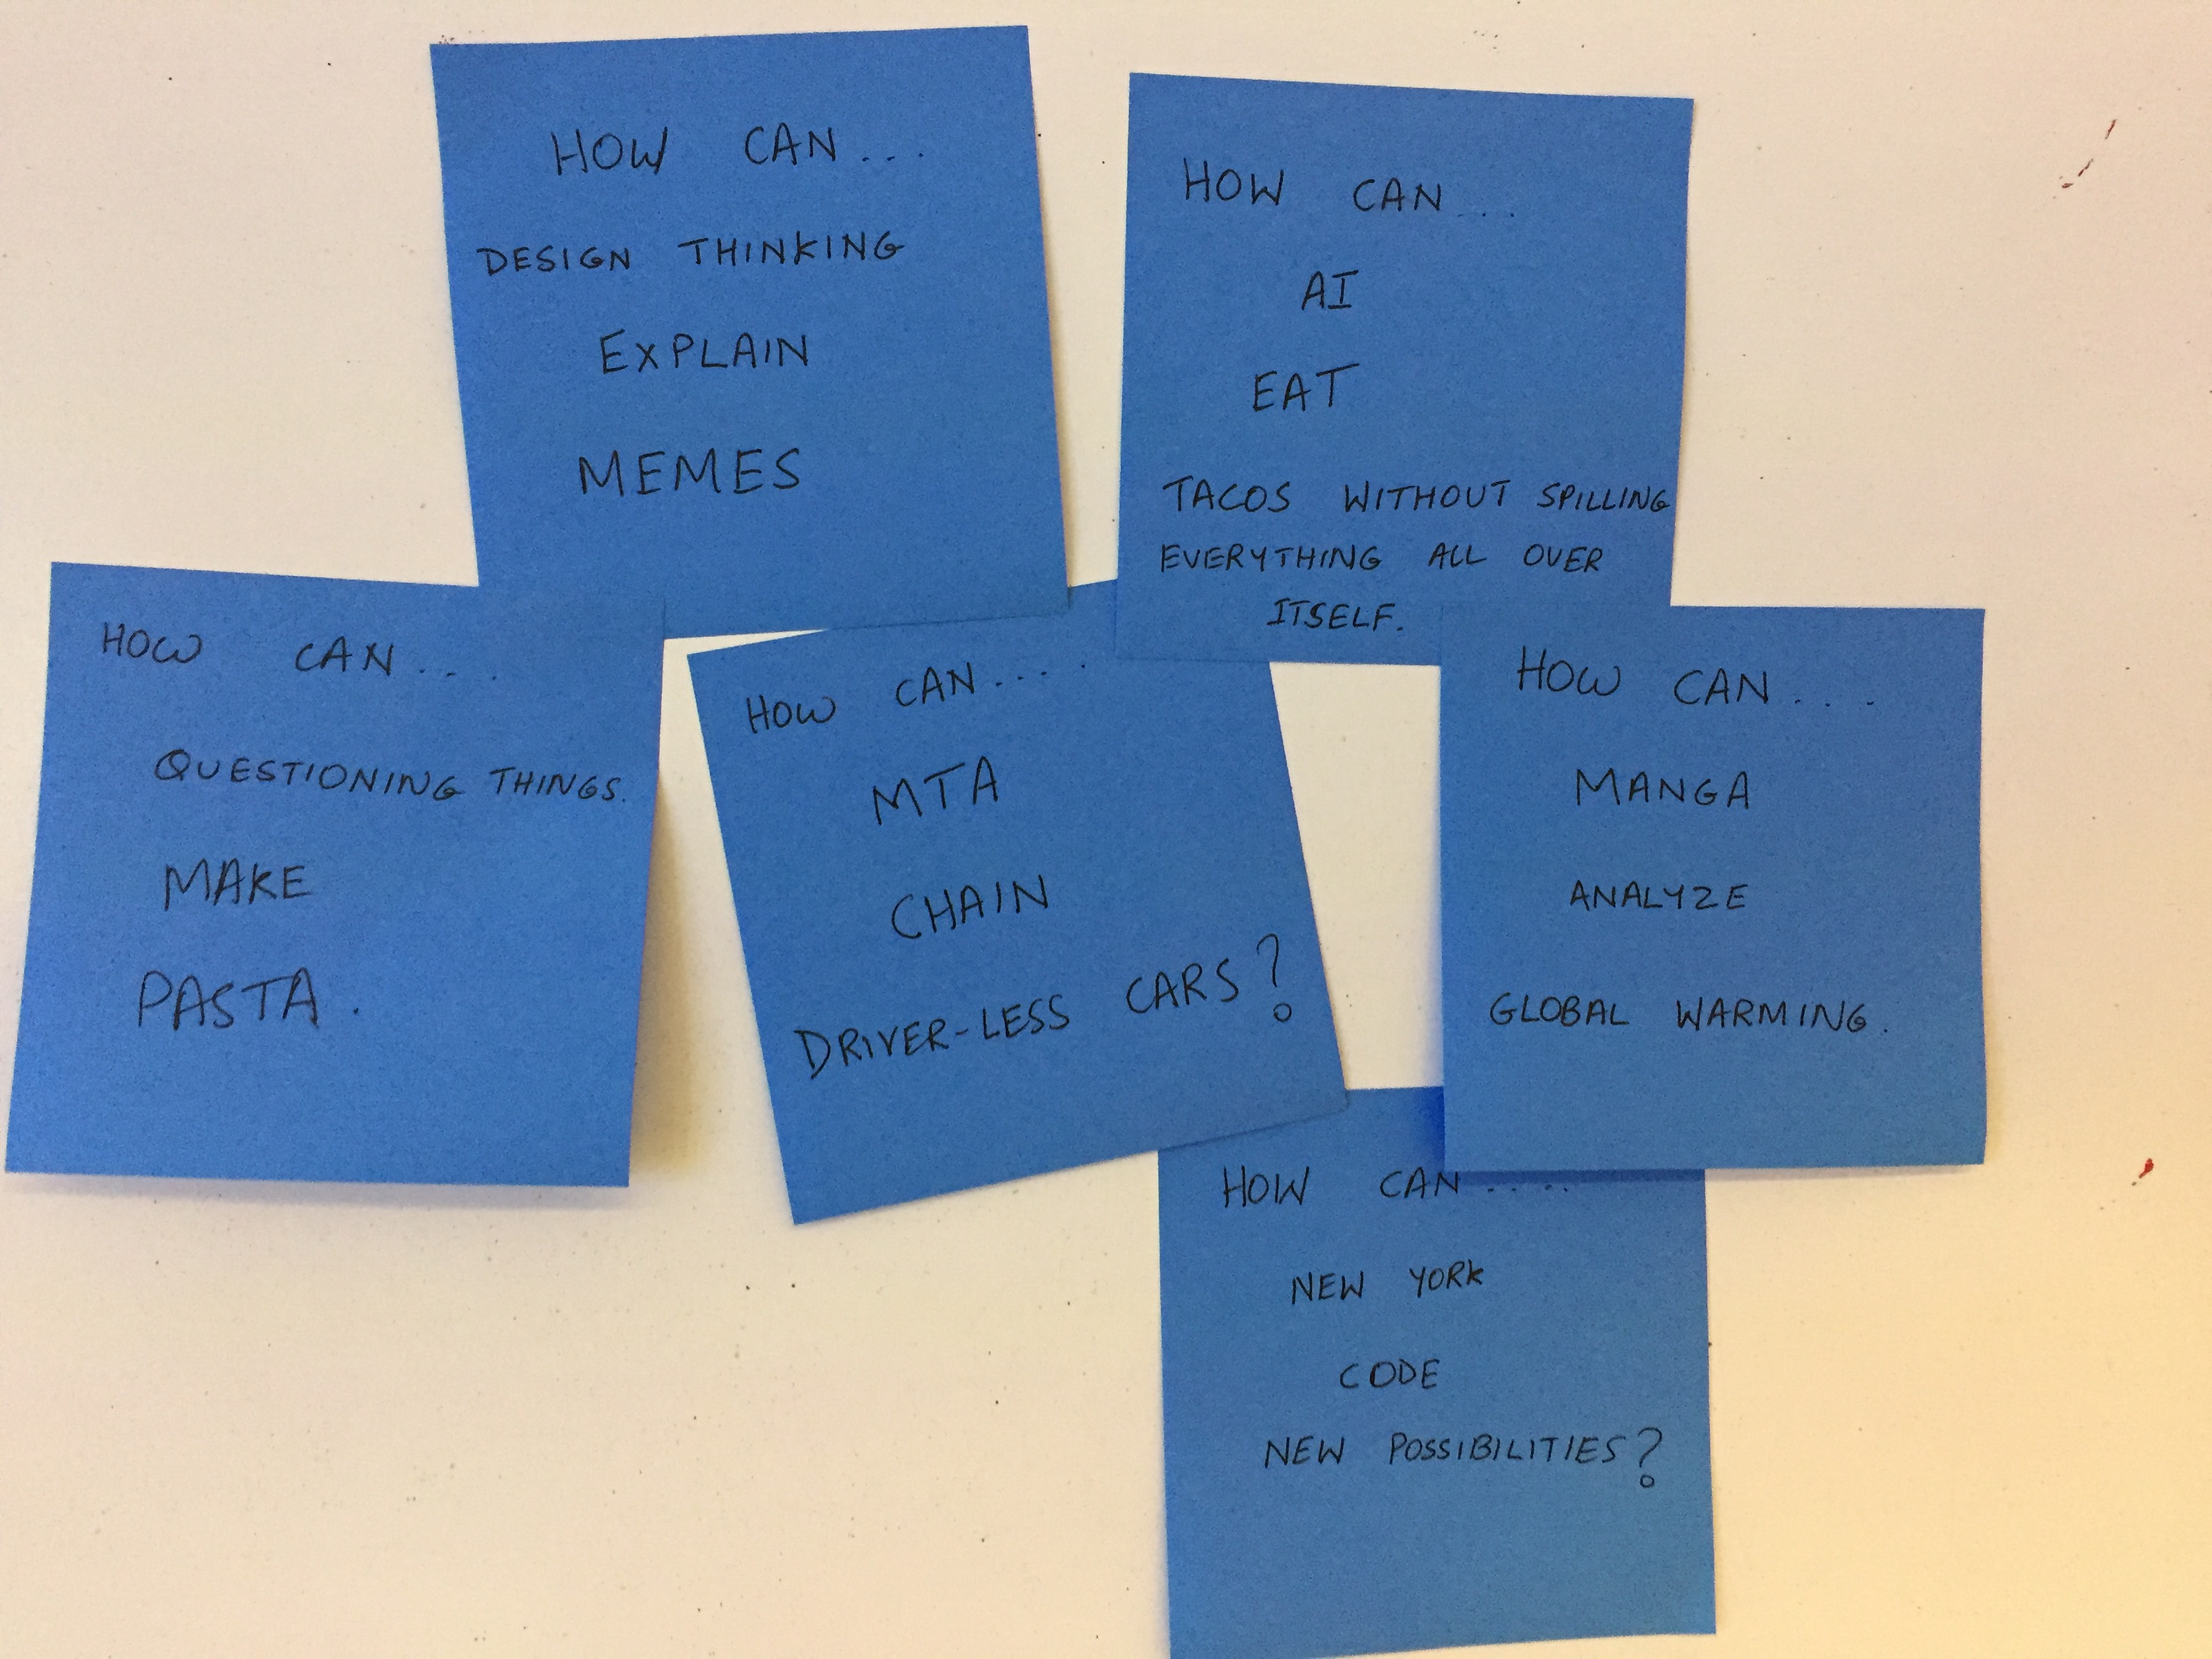 HOW CAN...
DESIGN THINKING
EXPLAIN
MEMES
HOW CAN...
AI
EAT
TACOS WITHOUT SPILLING
EVERYTHING ALL OVER
ITSELF.
HOW CAN...
QUESTIONING THINGS.
MAKE
PASTA.
HOW CAN....
MTA
CHAIN
DRIVER-LESS CARS?
HOW CAN....
MANGA
ANALYZE
GLOBAL WARMING.
HOW CAN.....
NEW YORK
CODE
NEW POSSIBILITIES?